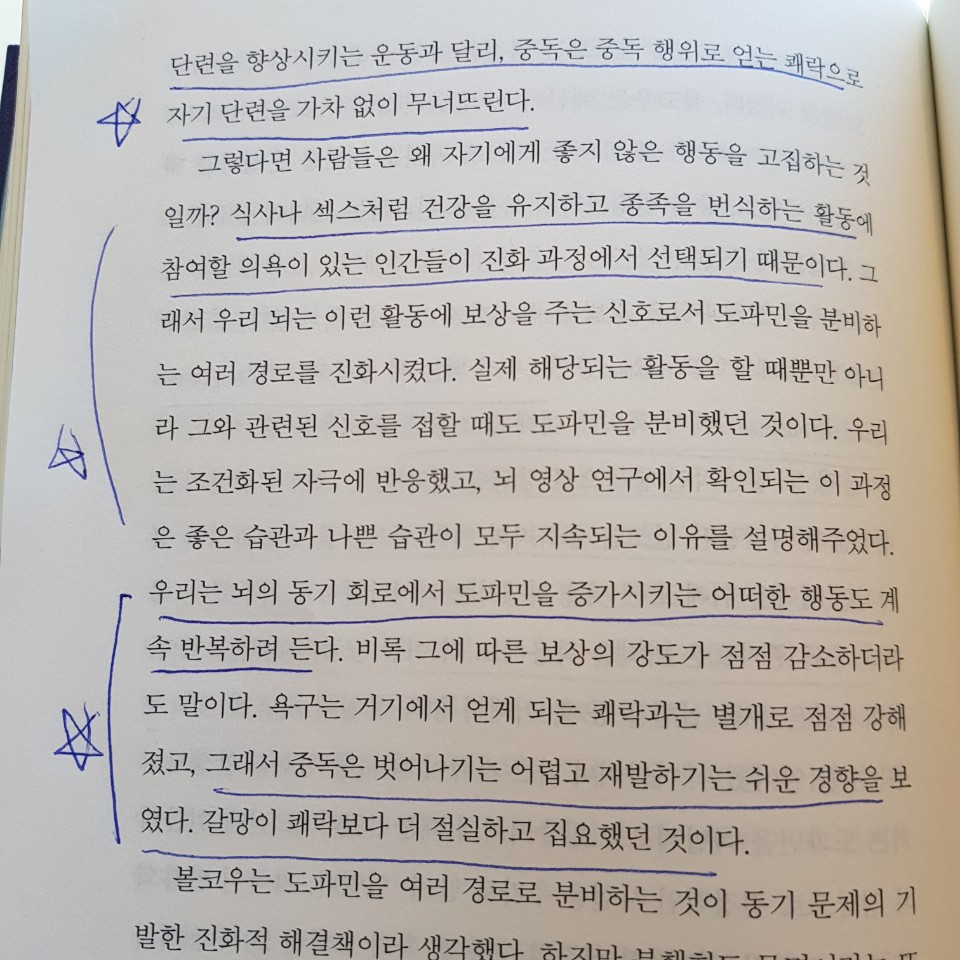 단련을 향상시키는 운동과 달리, 중독은 중독 행위로 얻는 쾌락으로
자기 단련을 가차 없이 무너뜨린다.
그렇다면 사람들은 왜 자기에게 좋지 않은 행동을 고집하는 것
일까? 식사나 섹스처럼 건강을 유지하고 종족을 번식하는 활동에
참여할 의욕이 있는 인간들이 진화 과정에서 선택되기 때문이다. 그
래서 우리 뇌는 이런 활동에 보상을 주는 신호로서 도파민을 분비하
는 여러 경로를 진화시켰다. 실제 해당되는 활동을 할 때뿐만 아니
라 그와 관련된 신호를 접할 때도 도파민을 분비했던 것이다. 우리
는 조건화된 자극에 반응했고, 뇌 영상 연구에서 확인되는 이 과정
은 좋은 습관과 나쁜 습관이 모두 지속되는 이유를 설명해주었다.
우리는 뇌의 동기 회로에서 도파민을 증가시키는 어떠한 행동도 계
속 반복하려 든다. 비록 그에 따른 보상의 강도가 점점 감소하더라
도 말이다. 욕구는 거기에서 얻게 되는 쾌락과는 별개로 점점 강해
졌고, 그래서 중독은 벗어나기는 어렵고 재발하기는 쉬운 경향을 보
였다. 갈망이 쾌락보다 더 절실하고 집요했던 것이다.
볼코우는 도파민을 여러 경로로 분비하는 것이 동기 문제의 기
발한 진화적 해결책이라 생각했다. 하지만